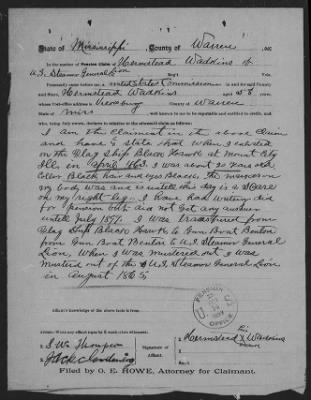 State of Mississippi, County of Warren, ss:
In the matter of Pension Claim of Hermstead Waddkins of
U.S. Steamer General Lion
Personally came before me a United States Commission in and for said County
and State, Hermstead Waddkins aged 58 years,
whose Post-office address is Vicksburg County of Warren
State of Miss
who, being duly sworn, declares in relation to the aforesaid claim as follows:
I am the claimant in the above claim
and have to state that when I enlisted
on the Flag Ship Black Hawk at Mount City
Ills in April 1863. I was about 23 years old,
Coler Black hair and eyes Black. The marks on
my body was and is untill this day is a Scare
on my right leg. I have had
for pension but did not get any answer
untill July 1897. I was transfured from
Flag Ship Black Hawk to Gun Boat Benton
from Gun Boat Benton to U.S. Steamer General
Lion, When I was mustered out I was
musterd out of the U.S. Steamer General Lion
in August 1865
S. W. Thompson
Signature of
Affiant.
Hermstead X Waddkins
PENSION
OFFICE
U.S.
Filed by O. E. HOWE, Attorney for Claimant.